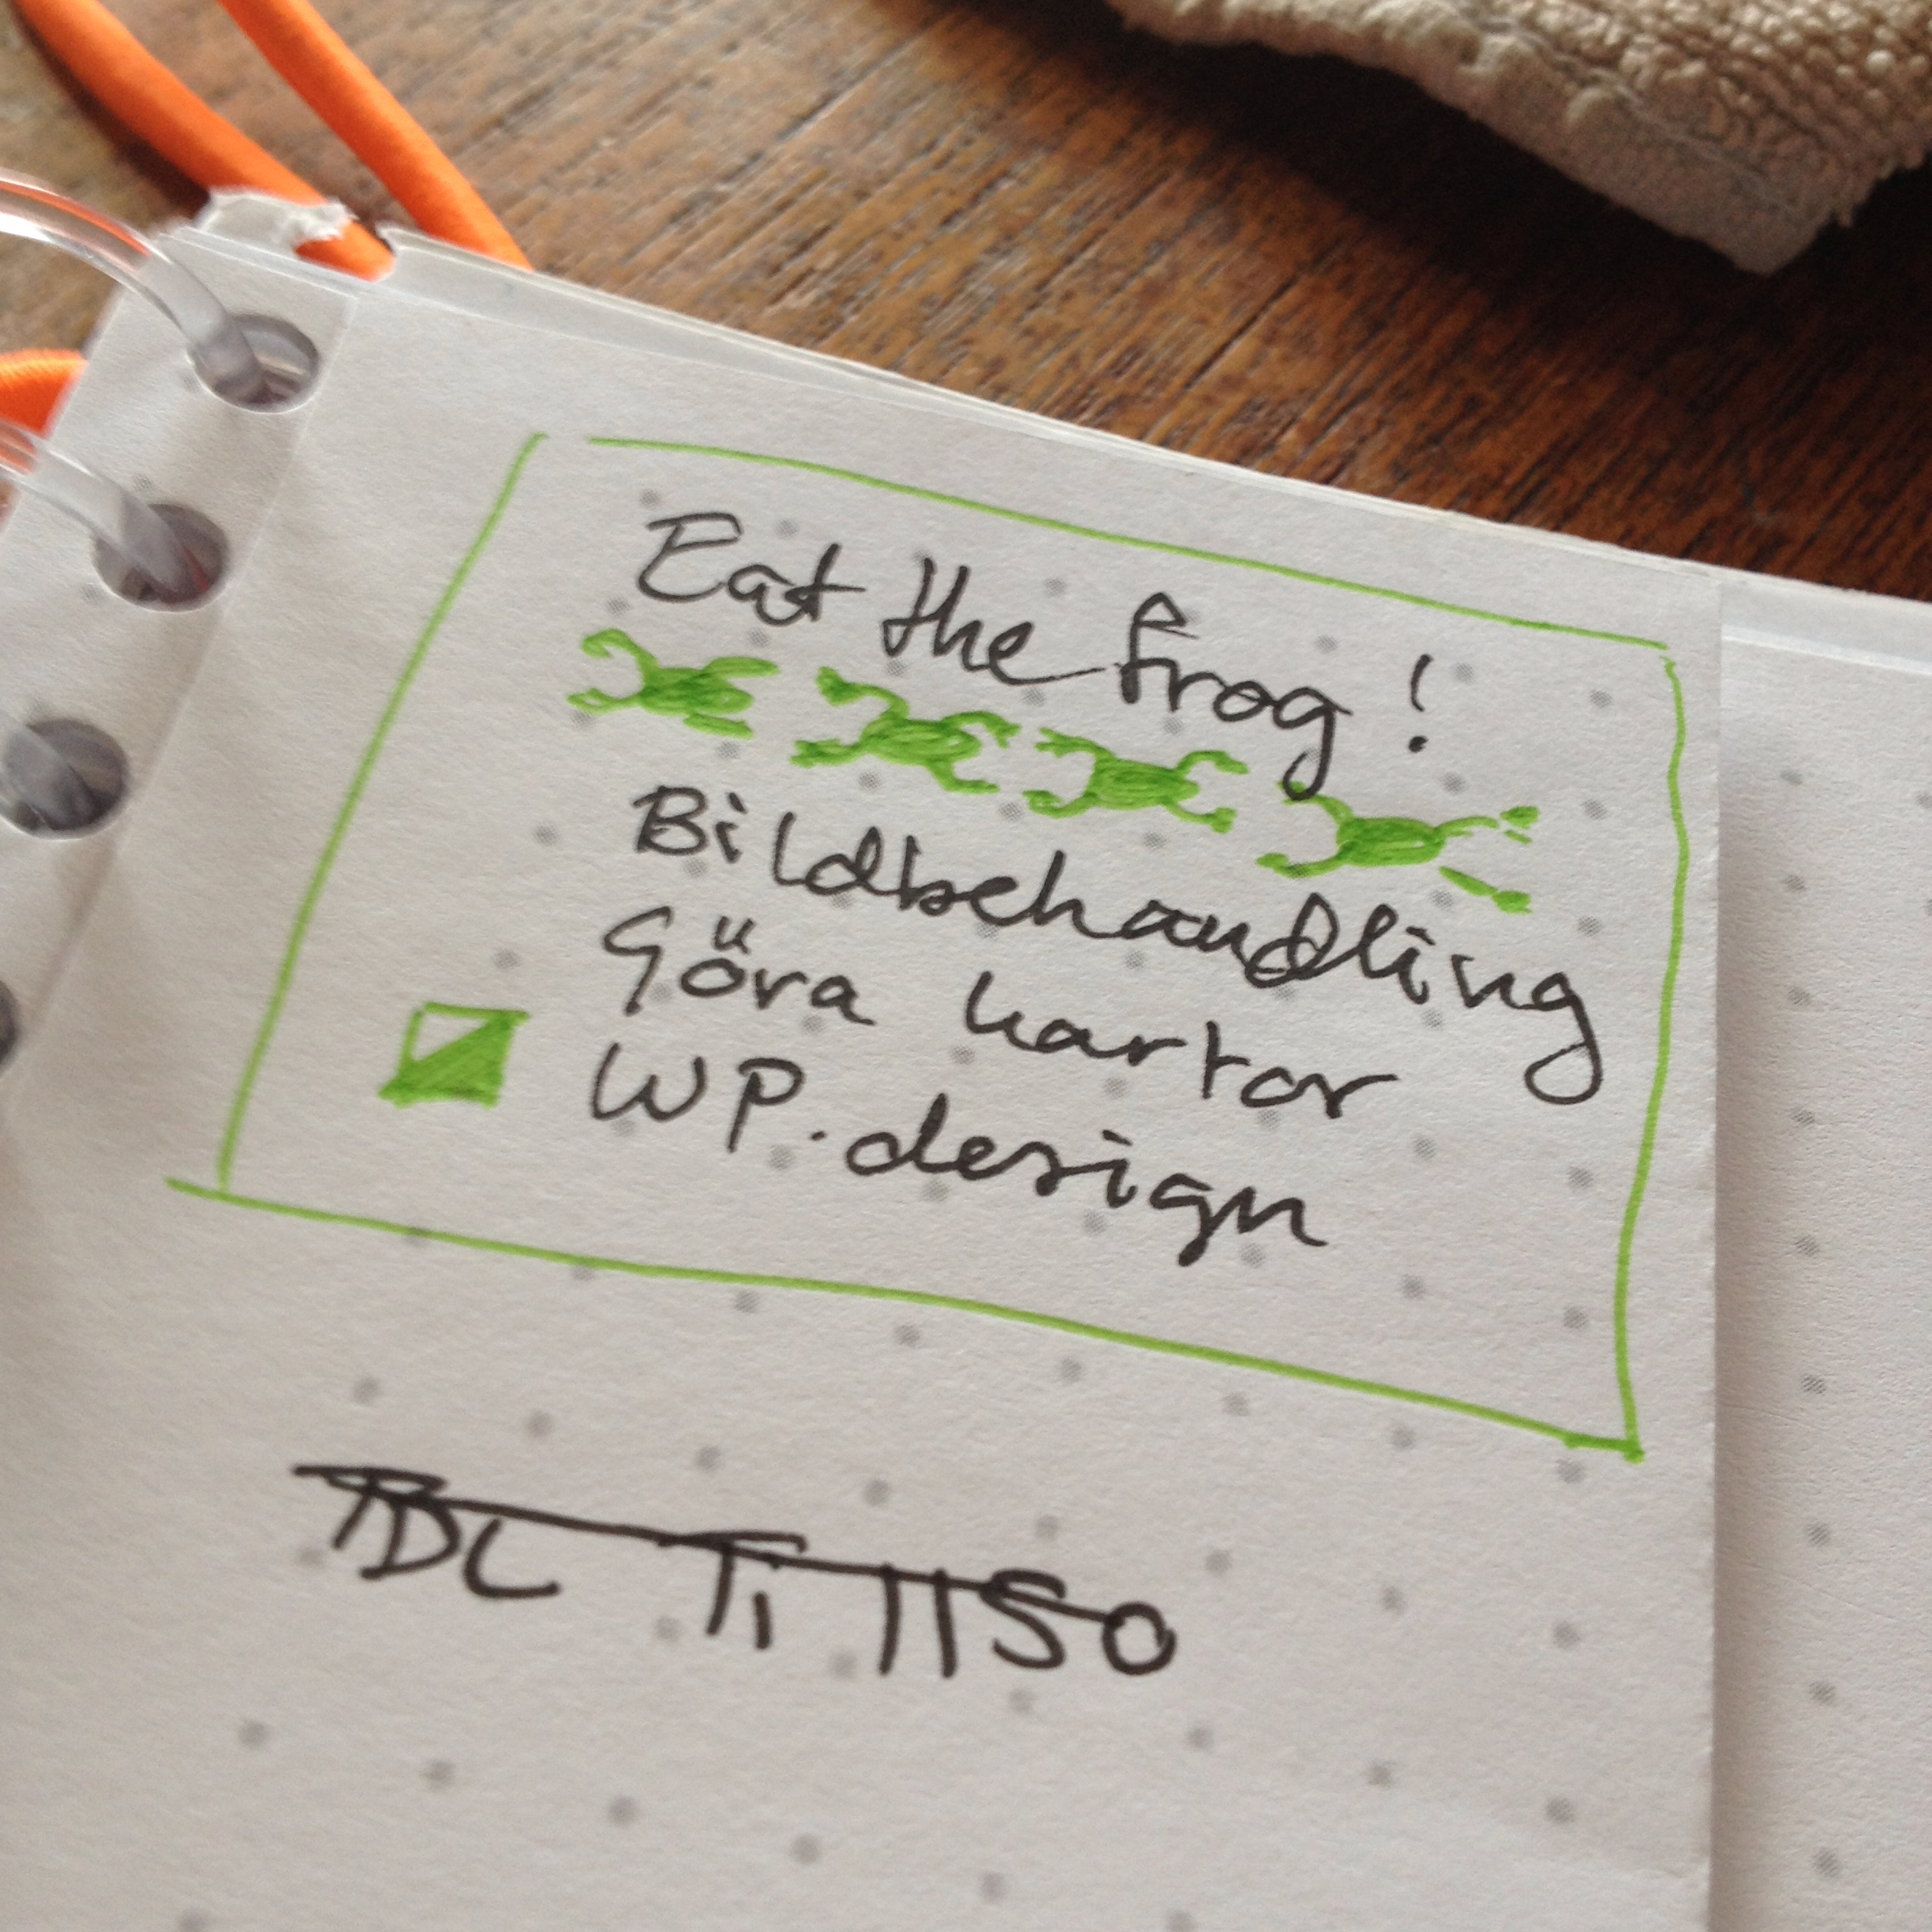 Eat the frog!
Bildbehandling
Göra kartor
WP. design
Ti 1150